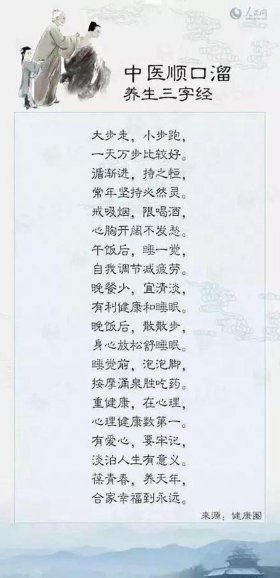 人民网
中医顺口溜
养生三字经
大步走，小步跑，
一天万步比较好。
循渐进，持之恒，
常年坚持必然灵。
戒吸烟，限喝酒，
心胸开阔不发愁。
午饭后，睡一觉，
自我调节减疲劳。
晚餐少，宜清淡，
有利健康和睡眠。
晚饭后，散散步，
身心放松舒睡眠。
睡觉前，泡泡脚，
按摩涌泉胜吃药。
重健康，在心理，
心理健康数第一。
有爱心，要牢记，
淡泊人生有意义。
葆青春，养天年，
合家幸福到永远。
来源：健康圈